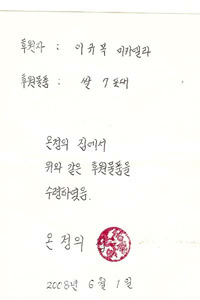 후원자 : 이규복 미카엘라
후원물품 : 쌀 7포대
온정의 집에서
위와 같은 후원물품을
수령하였음.
온정의
2008년 6월 1일